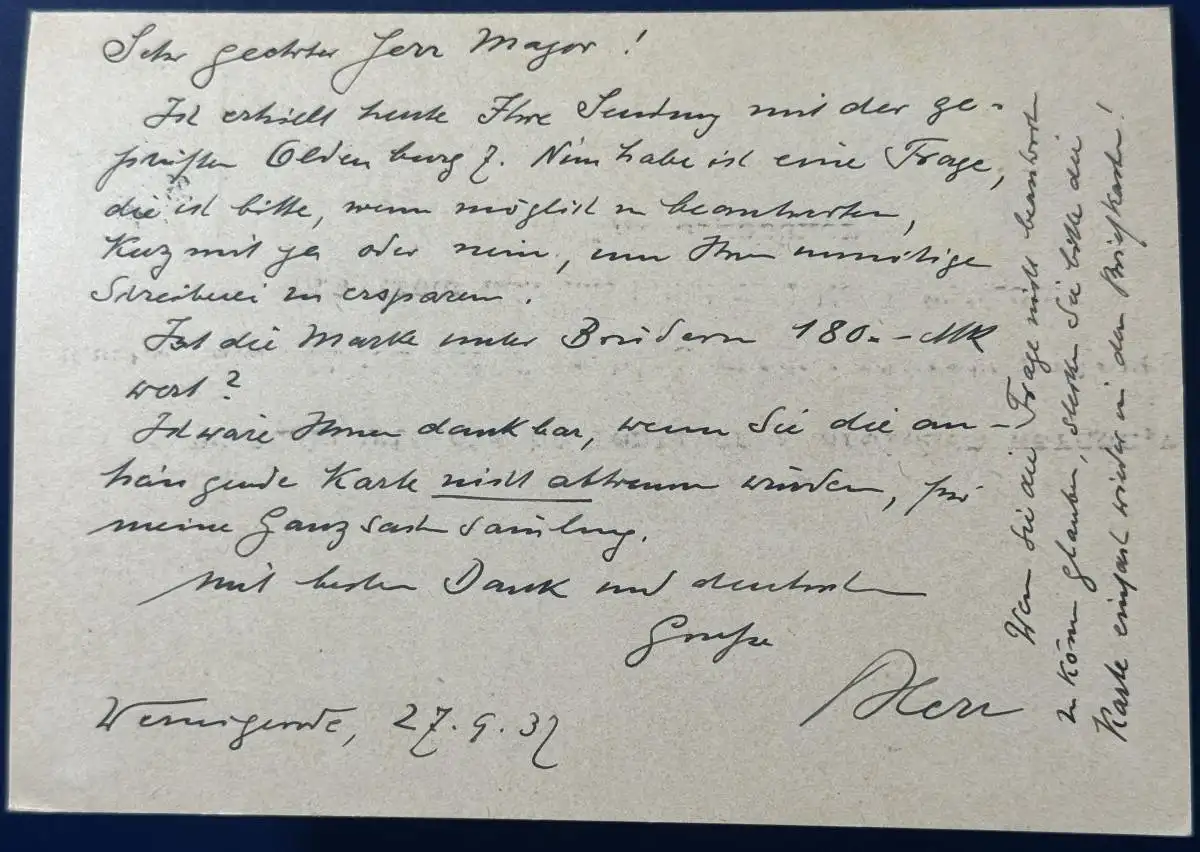 Sehr geehrter Herr Major!
Ich erhielt heute Ihre Sendung mit der ge-
prüften Oldenburg 7. Nun habe ich eine Frage,
die ich bitte, wenn möglich zu beantworten,
Kurz mit ja oder nein, um Ihnen unnötige
Schreiberei zu ersparen.
Ist die Marke unter Brüdern 180.- MK
wert?
Ich wäre Ihnen dankbar, wenn Sie die an-
hängende Karte nicht abtrennen würden, für
meine Ganzsachensammlung.
Mit besten Dank und deutschen
Grüße
Wernigerode, 27.9.37
Wenn Sie die Frage nicht beantworten
zu können glauben, stecken Sie bitte die
Karte einfach wieder in den Briefkasten!